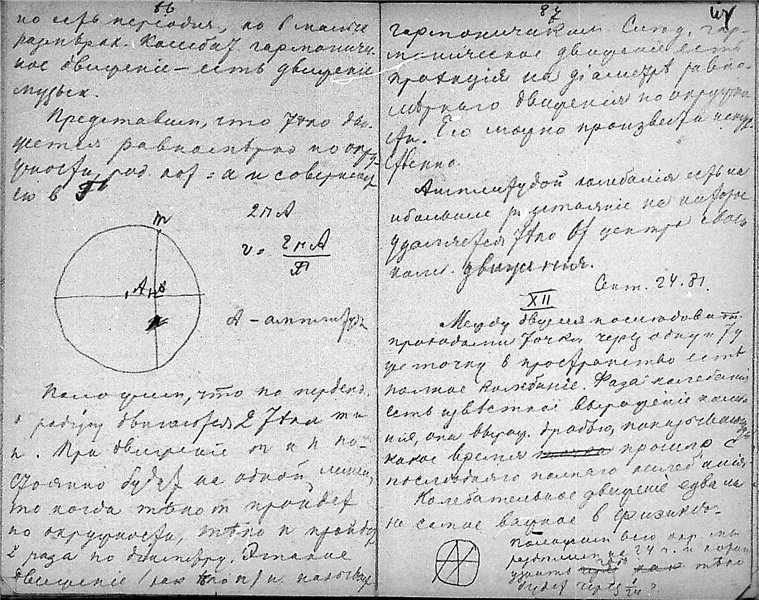 86
но есть періодия, но в малые
Колебат гармониче-
ное движеніе — есть движеніе
музык.
Представим, что тѣло дви-
жется равномѣрно по окру-
жности, рад. кот = а и совершает
ее в T
m
2πA
v = 2πA / T
A
A — амплитуда
Положим, что по перпенд.
к радіусу двигаются 2 тѣла m и
n. При движеніе m и n по-
стоянно будет на одной линіи,
то когда тѣло m пройдет
по окружности, тѣло n пройдет
2 раза по діаметру. Такое
движеніе (как тѣло n) и назыв.
87
гармоническим. След. гар-
моническое движеніе есть
проекція на діаметр равно-
мѣрнаго движенія по окружно
сти. Его можно произвести искус
ственно.
Амплитудой колебанія есть на
ибольшее разстояніе на которое
удаляется тѣло от центра своего
колеб. движенія.
Сент. 24. 81.
XII
Между двумя послѣдоват.
проходами точки через одну и ту
же точку в пространство есть
полное колебаніе. Фаза колебанія
есть извѣстное выраженіе колеба
нія, она выраж. дробью, показывающ.
какое время прошло с
послѣдняго полнаго колебанія
Колебательное движеніе едва ли
не самое важное в физико-
Положим всю окр. мы
раздѣлим на 24 ч. и
тѣло
будет через 1/24 ?